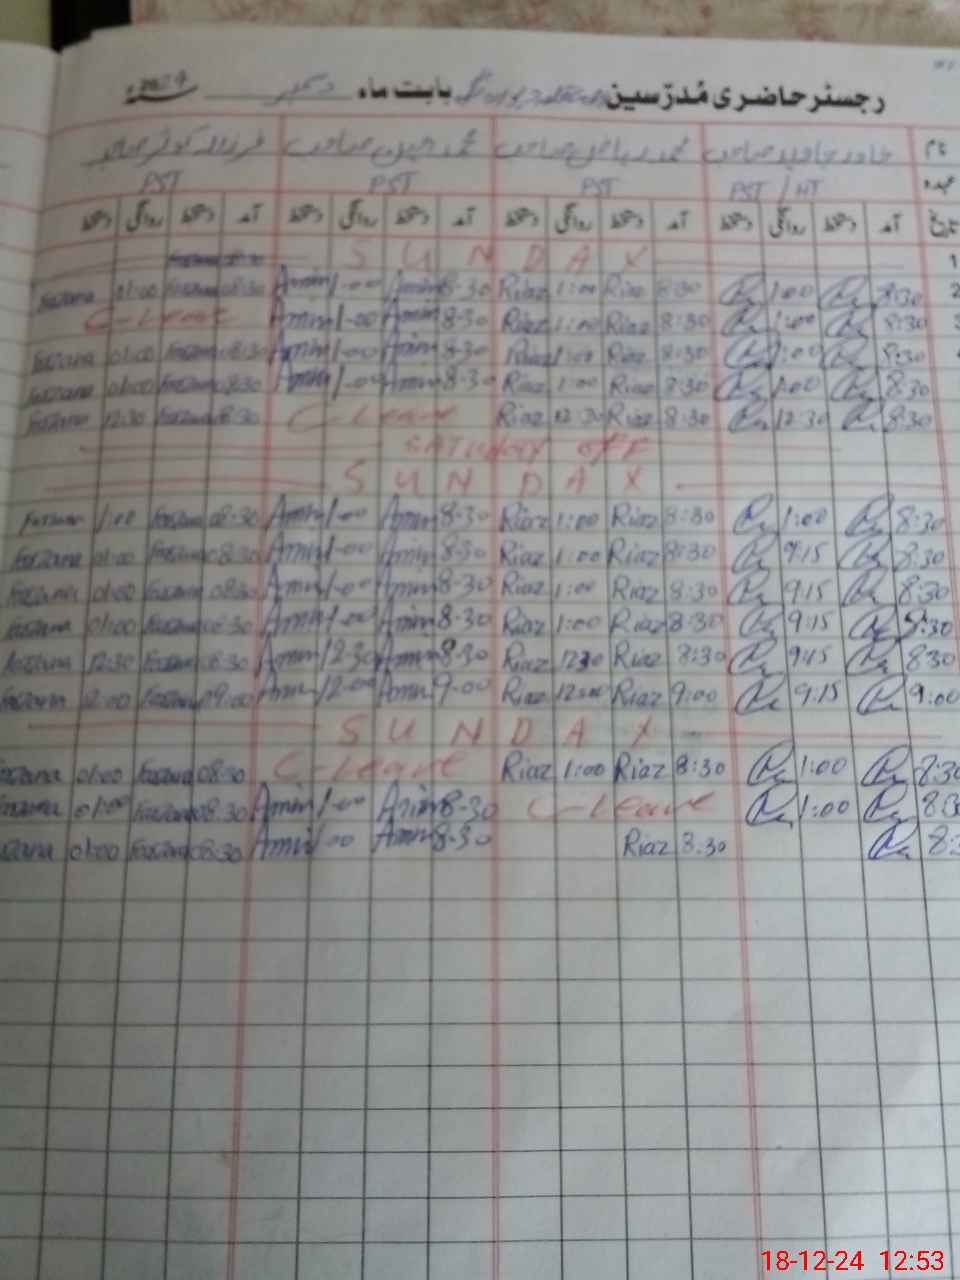 رجسٹر حاضری مُدرّسین بابت ماہ دسمبر سنہ 2024
نام خاور جاوید صاحب محمد ریاض صاحب محمد صاحب فرزانہ کوثر صاحبہ
عہدہ PST / HT PST PST PST
تاریخ آمد دستخط روانگی دستخط آمد دستخط روانگی دستخط آمد دستخط روانگی دستخط آمد دستخط روانگی دستخط
1 SUNDAY
Farzana 01:00 Farzana 08:30 Amin 1-00 Amin 8-30 Riaz 1:00 Riaz 8:30 1:00 8:30 2
C-Leave Amin 1-00 Amin 8-30 Riaz 1:00 Riaz 8:30 1:00 8:30 3
Farzana 01:00 Farzana 08:30 Amin 1-00 Amin 8-30 Riaz 1:00 Riaz 8:30 1:00 8:30
Farzana 01:00 Farzana 08:30 Amin 1-00 Amin 8-30 Riaz 1:00 Riaz 8:30 1:00 8:30
Farzana 12:30 Farzana 08:30 C-Leave Riaz 12:30 Riaz 8:30 12:30 8:30
SATURDAY OFF
SUNDAY
Farzana 1:00 Farzana 08:30 Amin 1-00 Amin 8-30 Riaz 1:00 Riaz 8:30 1:00 8:30
Farzana 01:00 Farzana 08:30 Amin 1-00 Amin 8-30 Riaz 1:00 Riaz 8:30 9:15 8:30
Farzana 01:00 Farzana 08:30 Amin 1-00 Amin 8-30 Riaz 1:00 Riaz 8:30 9:15 8:30
Farzana 01:00 Farzana 08:30 Amin 1-00 Amin 8-30 Riaz 1:00 Riaz 8:30 9:15 8:30
Farzana 12:30 Farzana 08:30 Amin 12-30 Amin 8-30 Riaz 1230 Riaz 8:30 9:15 830
Farzana 12:00 Farzana 09:00 Amin 12-00 Amin 9-00 Riaz 12:00 Riaz 9:00 9:15 9:00
SUNDAY
Farzana 01:00 Farzana 08:30 C-Leave Riaz 1:00 Riaz 8:30 1:00 8:30
Farzana 01:00 Farzana 08:30 Amin 1-00 Amin 8-30 C-Leave 1:00 8:30
Farzana 01:00 Farzana 08:30 Amin 1-00 Amin 8-30 Riaz 8:30
18-12-24 12:53